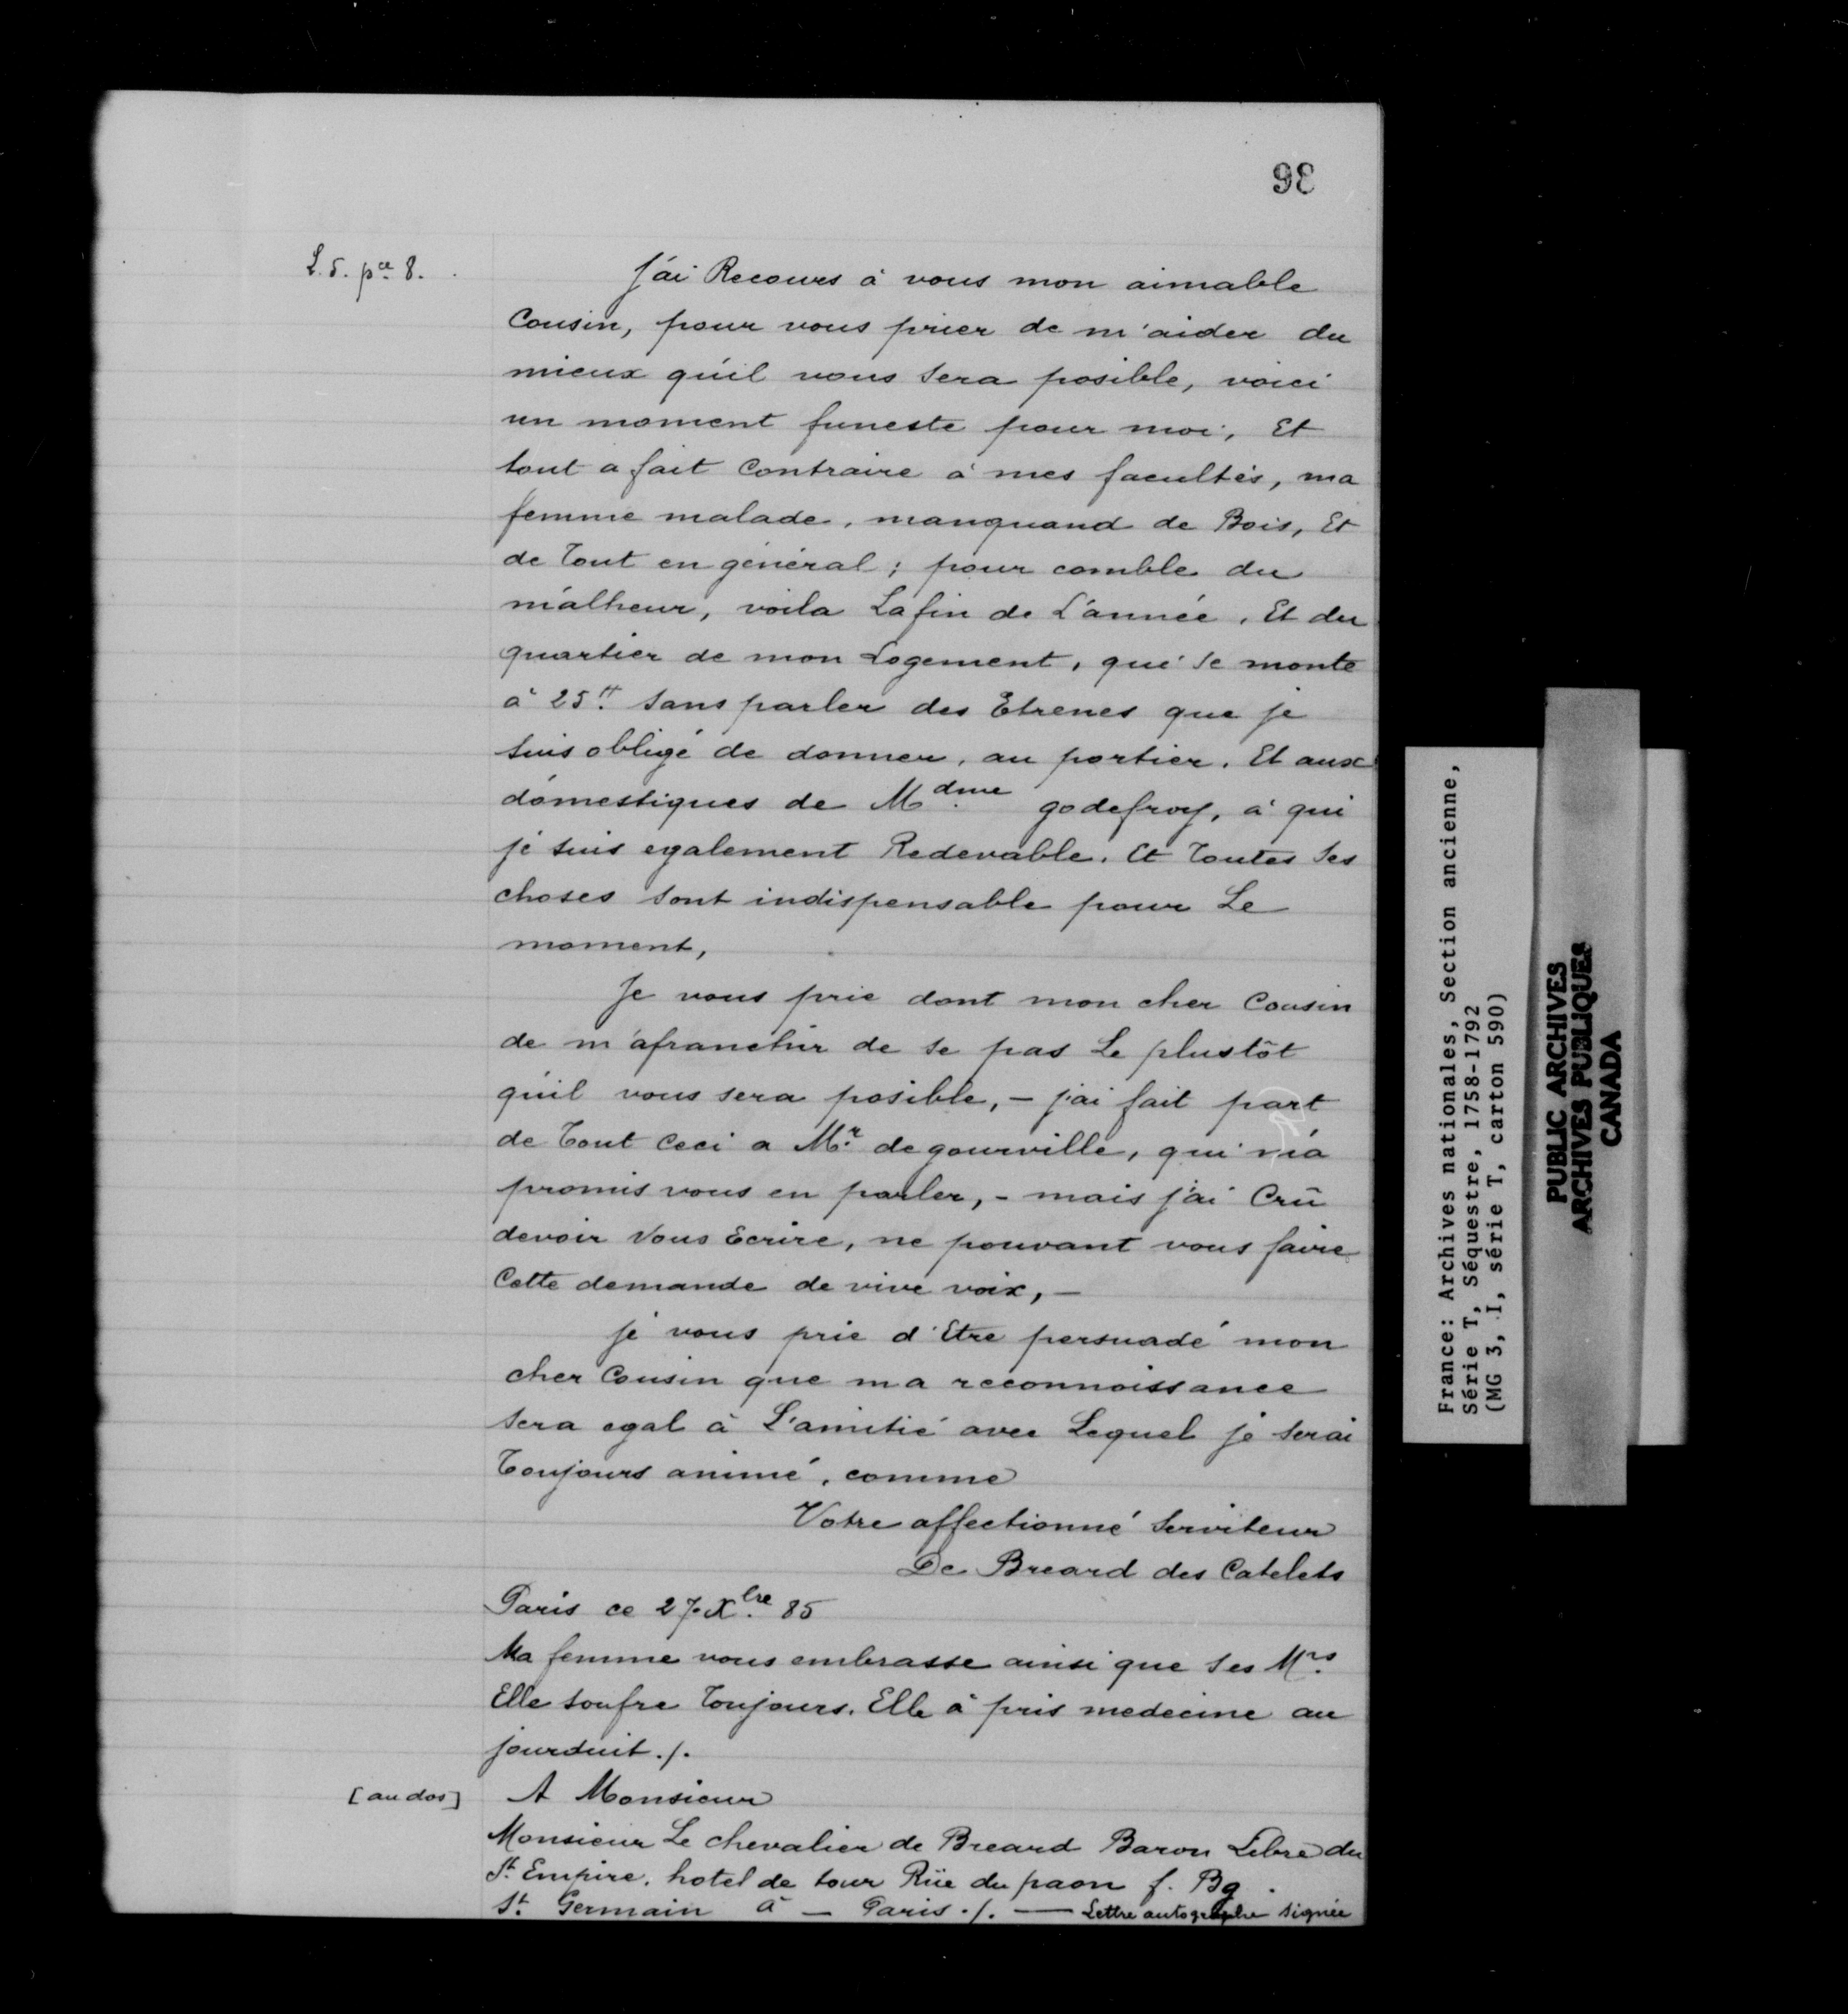 36
L. 5. pce 8.
J'ai Recours à vous mon aimable
Cousin, pour vous prier de m'aider du
mieux qu'il vous sera posible, voici
un moment funeste pour moi, Et
tout a fait Contraire à mes facultés, ma
femme malade, manquand de Bois, Et
de Tout en général ; pour comble du
málheur, voila Lafin de L'année, Et du
quartier de mon Logement, qui se monte
à 25tt. sans parler des Etrenes que je
suis obligé de donner, au portier. Et aux
domestiques de Mdme. godefroy, à qui
je suis egalement Redevable. Et Toutes ses
choses sont indispensable pour Le
moment,
Je vous prie dont mon cher Cousin
de m'afranchir de se pas Le plustôt
qu'il vous sera posible, — j'ai fait part
de Tout Ceci a Mr. de gourville, qui m'a
promis vous en parler, - mais j'ai Crû
devoir Vous Ecrire, ne pouvant vous faire
Cette demande de vive voix, —
je vous prie d'Etre persuadé mon
cher Cousin que ma reconnoissance
sera egal à L'amitié avec Lequel je serai
Toujours animé, comme
Votre affectionné Serviteur
De Breard des Catelets
Paris ce 27. Xbre. 85
Ma femme vous embrasse ainsi que ses Mrs.
Elle soufre Toujours. Elle à pris medecine au
jourduit ./.
[au dos] A Monsieur
Monsieur Le chevalier de Breard Baron Libre du
St. Empire. hotel de tour Rüe du paon f. Bg.
St. Germain à — Paris ./. — Lettre autographe signée
France: Archives nationales, Section ancienne,
Série T, Séquestre, 1758-1792
(MG 3, I, série T, carton 590)
PUBLIC ARCHIVES
ARCHIVES PUBLIQUES
CANADA